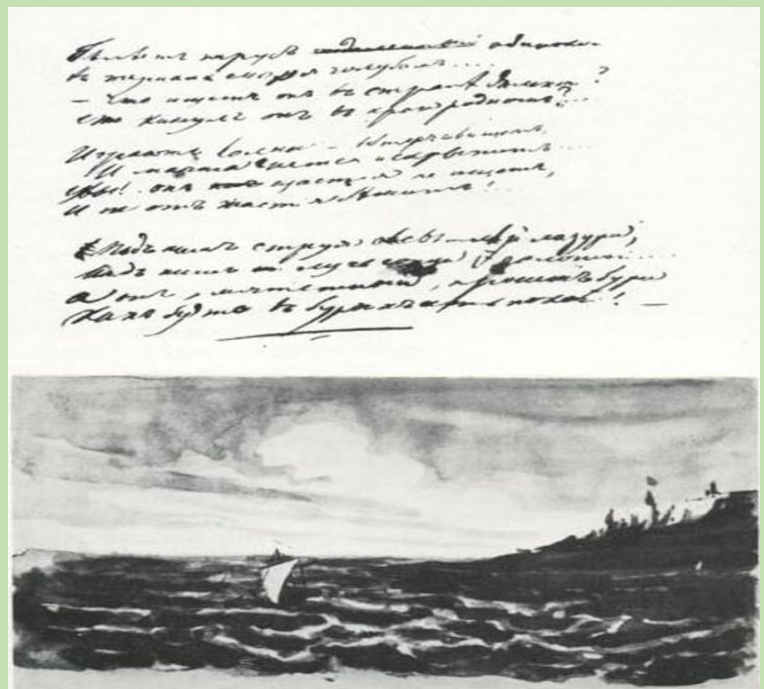 Бѣлѣетъ парусъ одинокой
Въ туманѣ моря голубомъ....
— Что ищетъ онъ въ странѣ далекой?
Что кинулъ онъ въ краю родномъ?...
Играютъ волны — вѣтеръ свищетъ,
И мачта гнется и скрыпитъ....
Увы! онъ счастія не ищетъ,
И не отъ счастія бѣжитъ!
Подъ нимъ струя свѣтлѣй лазури,
Надъ нимъ лучъ солнца золотой....
А онъ, мятежный, проситъ бури
Какъ будто въ буряхъ есть покой! —